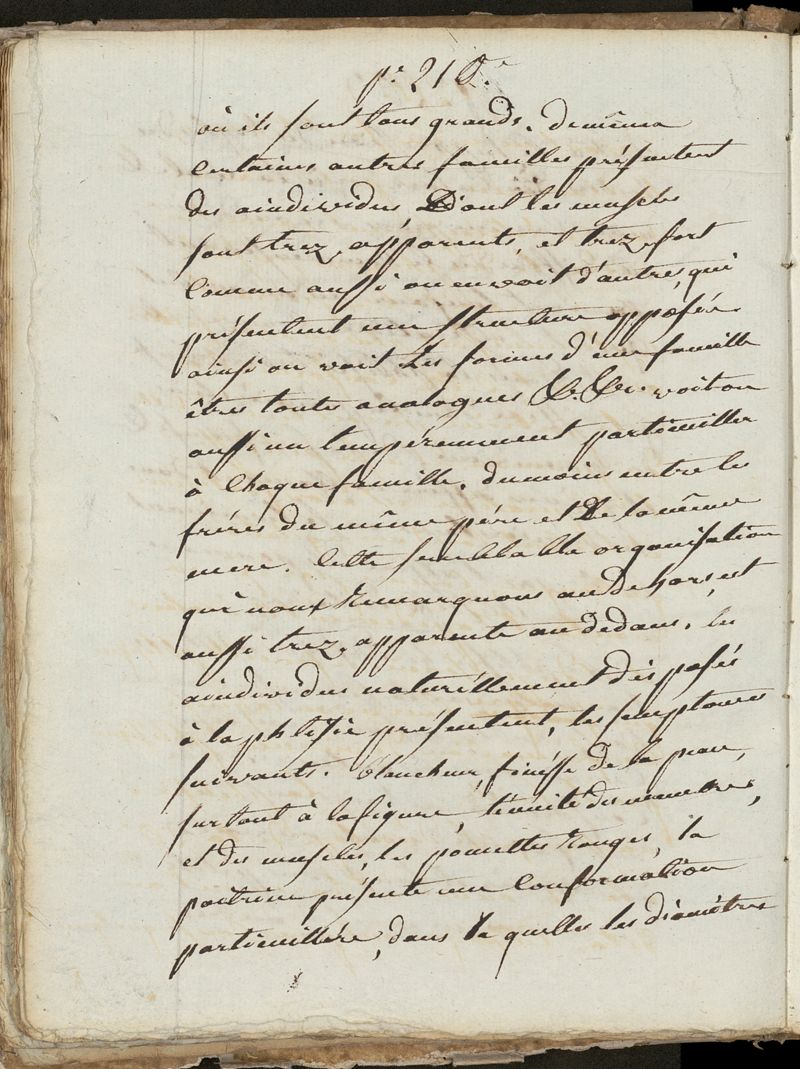 pe 210.
où ils sont tous grands. de même
certaines autres familles présentent
des aindividus, Dont les muscles
sont trez, apparents, et trez, fort
comme aussi on en voit d'autres, qui
présentent une structure opposée
ainsi on voit Les formes d'une famille
êtres toutes analogues &c. &c. voit on
aussi un tempéremment partiouiller
à chaque famille. du moins entre les
fréres du même pére et De la même
mere. cette semblable organisation
que noux Remarquons au dehors, est
aussi trez, apparente au dedans. les
aindividus naturéllement disposés
à la phtisie présentent, les semptomes
suivants. blancheur, finésse de la peau,
surtout à la figure, ténuité des membres,
et des muscles, les pomettes Rouges, la
poitrine présente une conformation
partiouillére, dans la quelles les diamétres